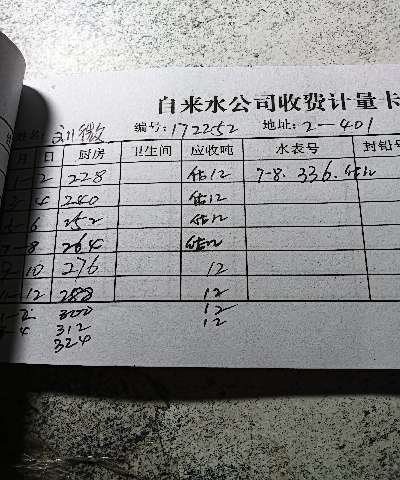 自来水公司收费计量卡
姓名: 刘微 编号: 172252 地址: 2-401
月 日 厨房 卫生间 应收吨 水表号 封铅号
1-2 228 估12 7-8. 336. 估12
3-4 240 估12
5-6 252 估12
7-8 264 估12
9-10 276 12
11-12 288 12
1-2 300 12
3-4 312 12
324